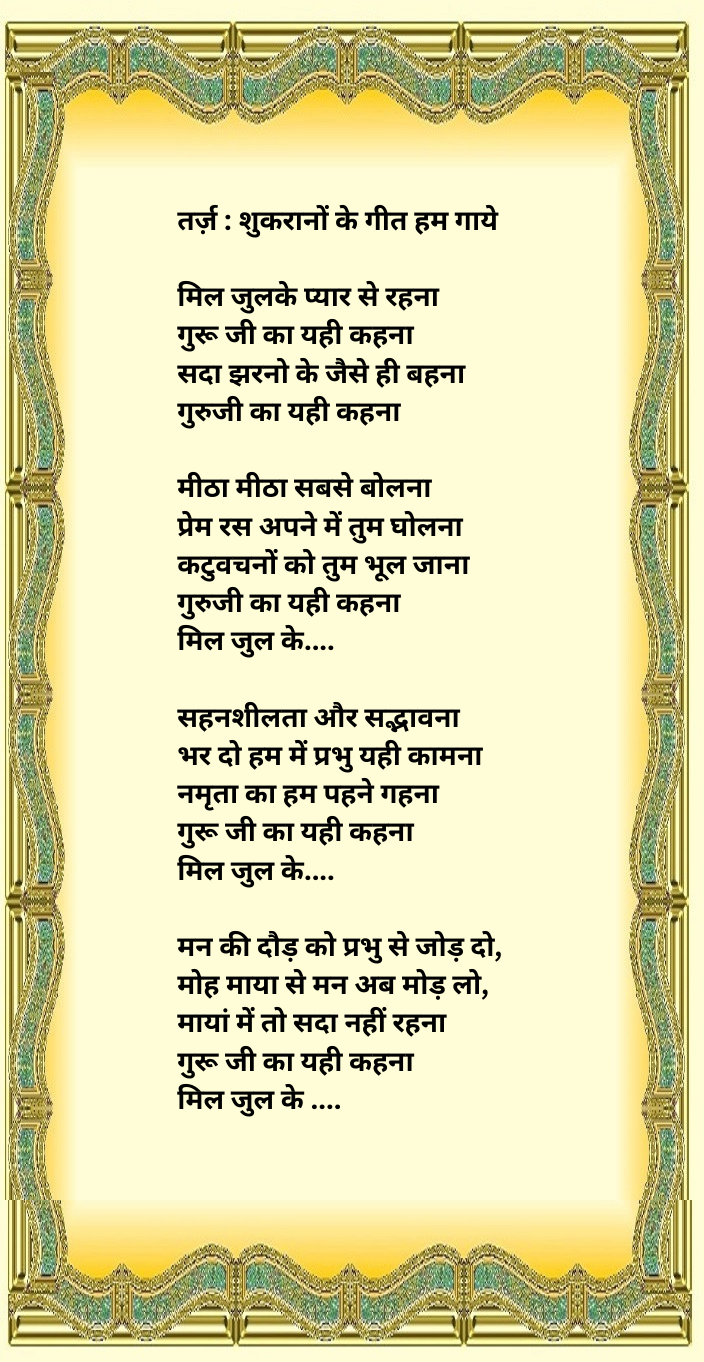 तर्ज़ : शुकरानों के गीत हम गाये
मिल जुलके प्यार से रहना
गुरू जी का यही कहना
सदा झरनो के जैसे ही बहना
गुरुजी का यही कहना
मीठा मीठा सबसे बोलना
प्रेम रस अपने में तुम घोलना
कटुवचनों को तुम भूल जाना
गुरुजी का यही कहना
मिल जुल के....
सहनशीलता और सद्भावना
भर दो हम में प्रभु यही कामना
नमृता का हम पहने गहना
गुरू जी का यही कहना
मिल जुल के....
मन की दौड़ को प्रभु से जोड़ दो,
मोह माया से मन अब मोड़ लो,
मायां में तो सदा नहीं रहना
गुरू जी का यही कहना
मिल जुल के ....